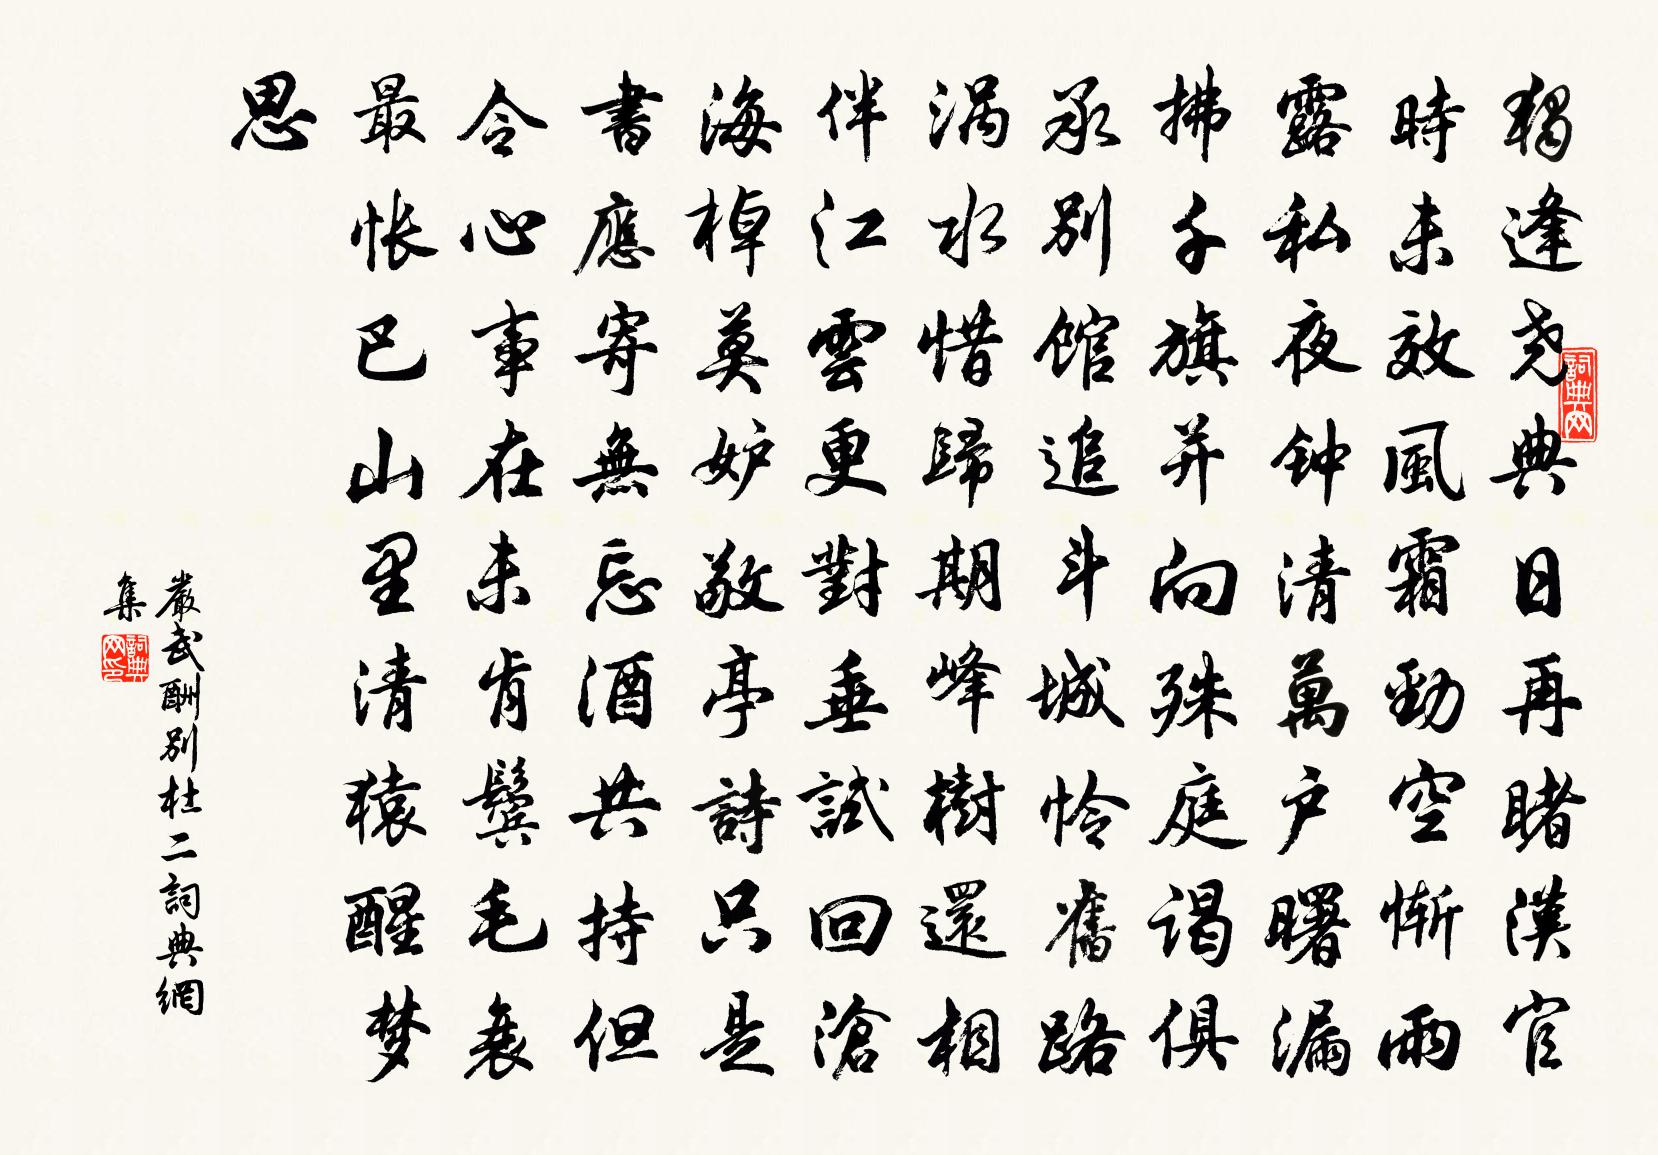 獨逢堯典日再睹漢官
時未效風霜勁空慚雨
露私夜钟清萬户曙漏
拂千旗并向殊庭謁俱
承别館追斗城怜舊路
渦水惜歸期峰樹還相
伴江雲更對垂試回滄
海棹莫妒敬亭詩只是
書應寄無忘酒共持但
令心事在未肯鬓毛衰
最怅巴山里清猿醒梦
思
嚴武酬别杜二詞典網
集
詞典网
詞典网印